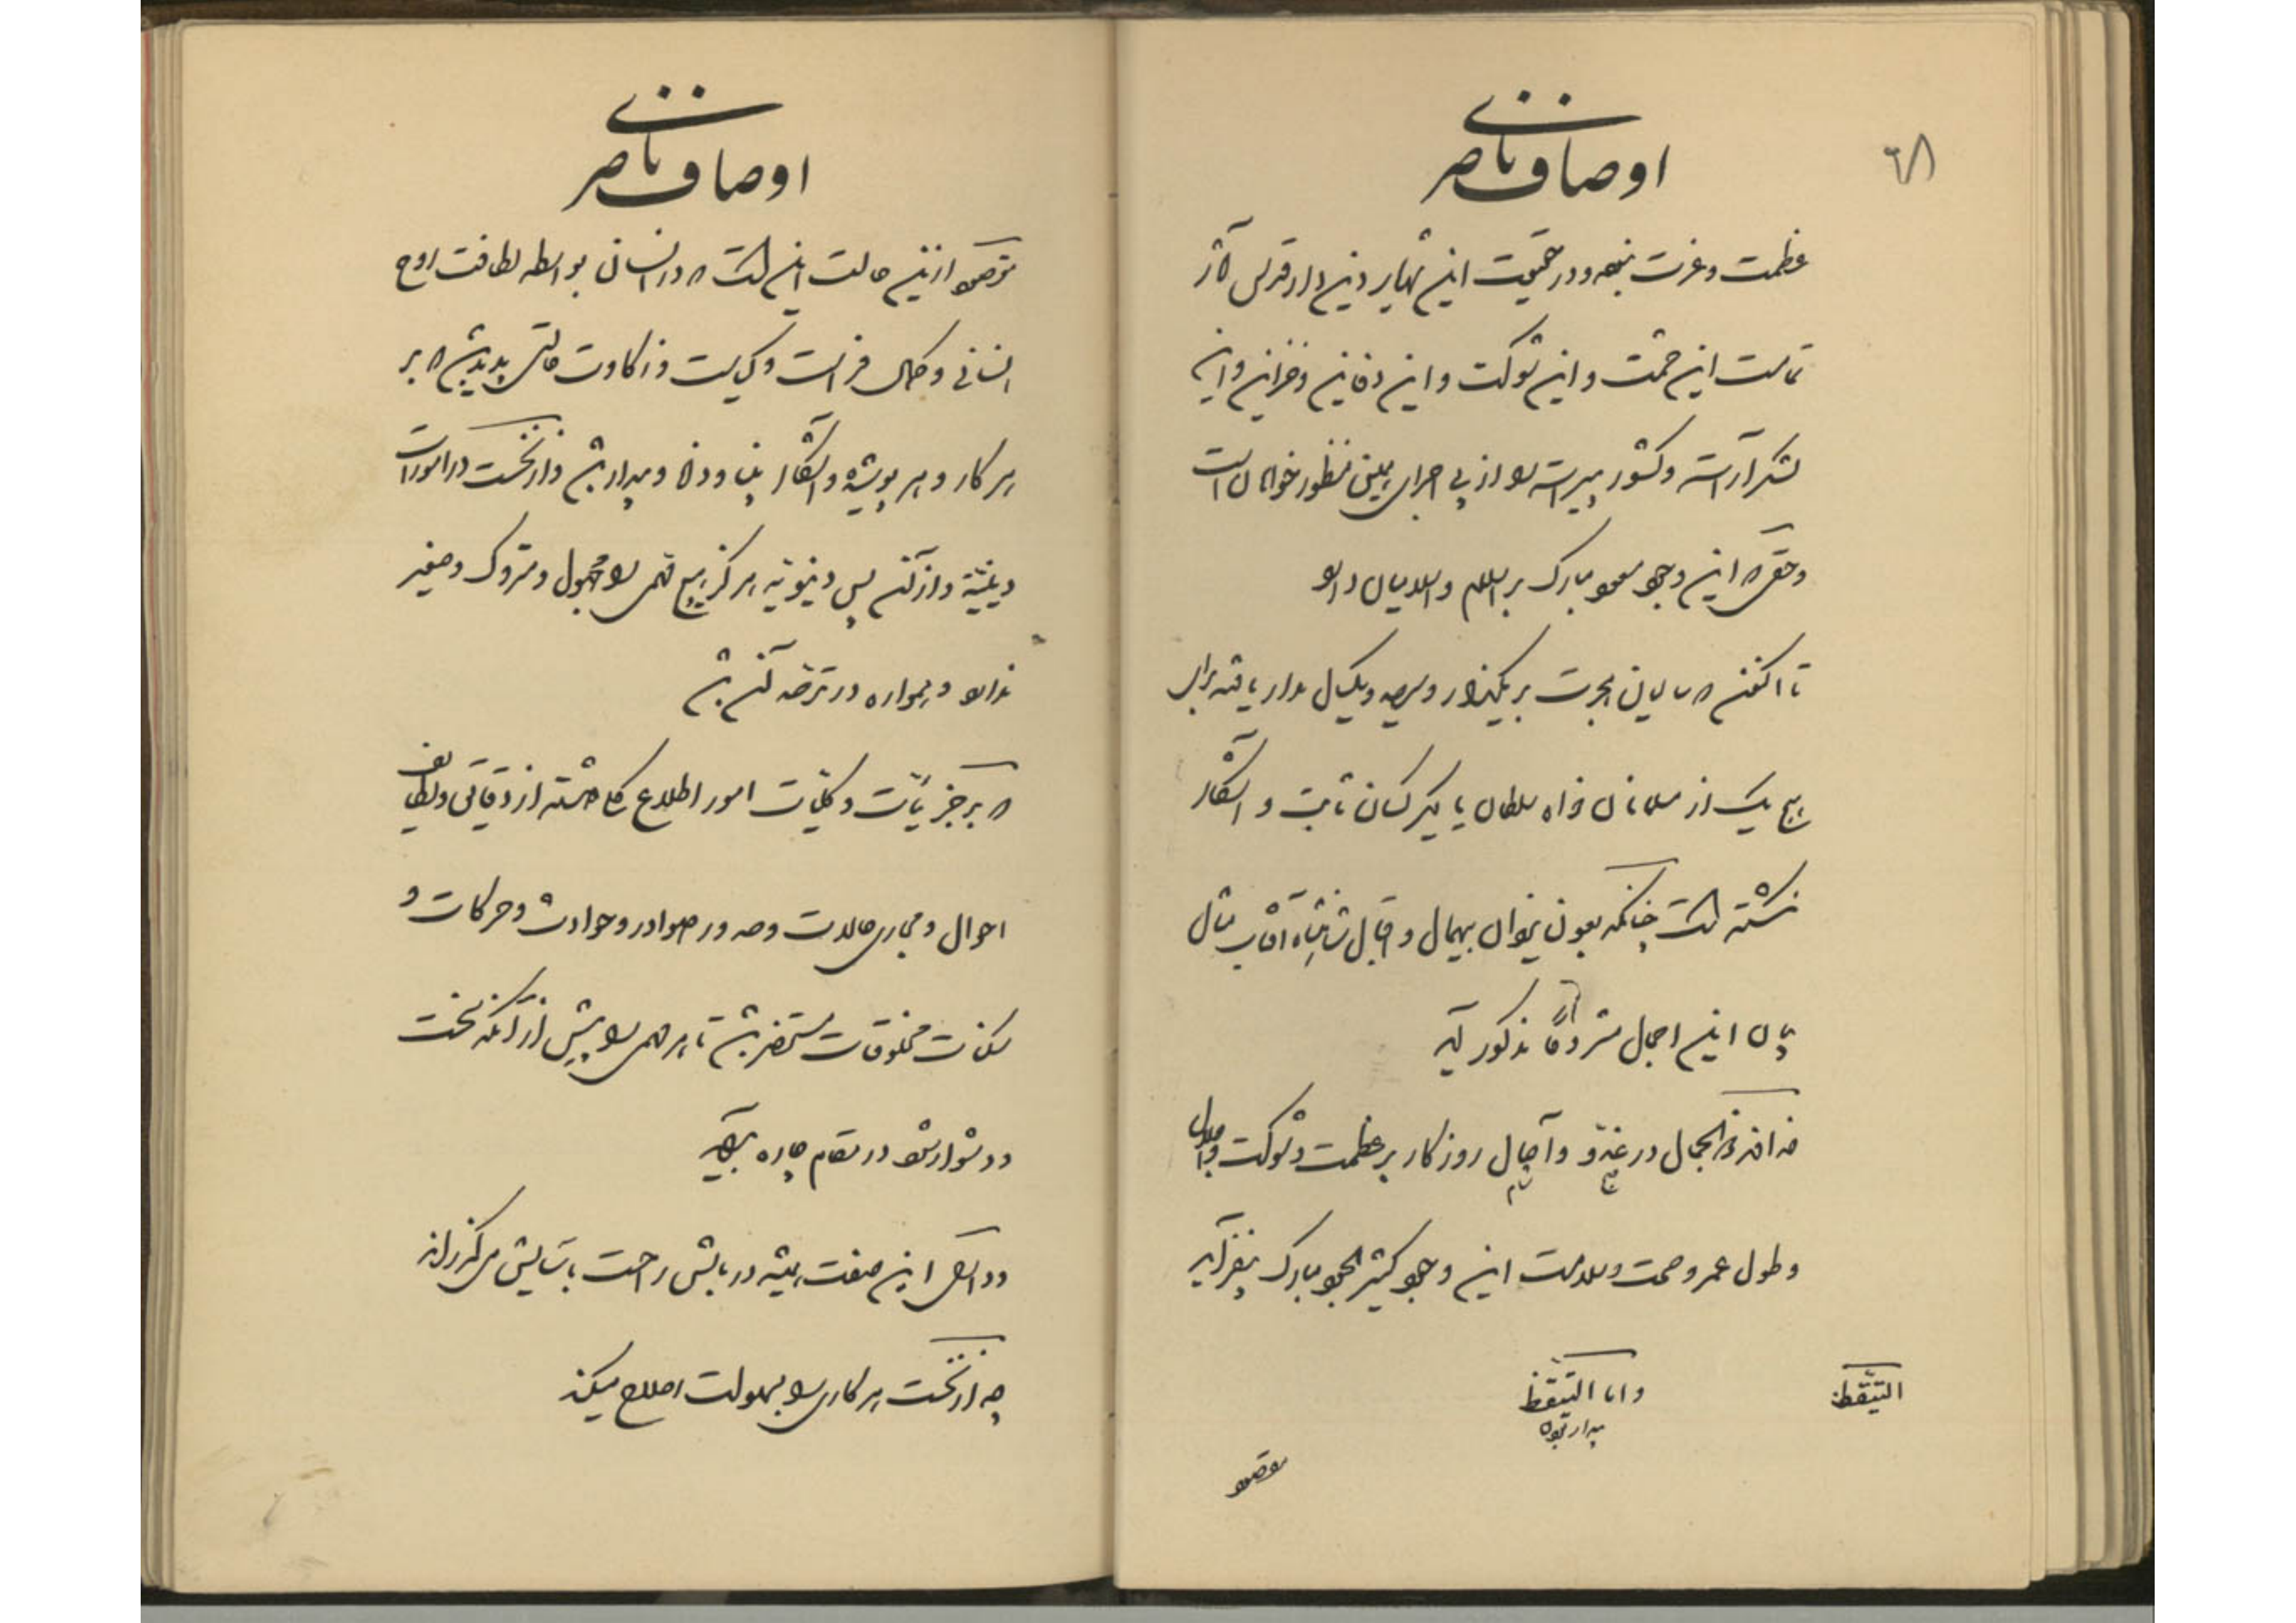 ٦٨
اوصاف ناصری
عظمت و عزت بنموده و در حقیقت این شهریار دین دار قدس آثار
تمامت این حشمت و این شوکت و این دفاین و خزاین و این
لشکر آراسته و کشور پیراسته را از پی اجرای همین منظور خواهان است
و حقی که این وجود مسعود مبارک بر اسلام و اسلامیان دارد
تا اکنون که سالیان هجرت بر یکهزار و سیصد و یکسال مدار یافته برای
هیچ یک از مسلمانان خواه سلطان یا دیگر کسان ثابت و آشکار
نگشته است چنانکه بعون یزدان بیهمال و اقبال شاهنشاه آفتاب مثال
پایان این اجمال مشروحاً مذکور آید
خداوند ذوالجلال در عزت و آجال روزگار پر عظمت و شوکت و اجلال
و طول عمر و صحت و سلامت این وجود کثیر الجود مبارک بیفزاید
التیقظ
و اما التیقظ
بیدار بودن
مقصود
اوصاف ناصری
مقصود از این حالت این است که در انسان بواسطه لطافت روح
انسانی و کمال فراست و کیاست و ذکاوت حالتی پدید شود که بر
هر کار و هر پوشیده و آشکار بینا و دانا و بیدار باشد و از نخست در امورات
دینیه و از آن پس دنیویه هرگز هیچ مهمی را مجهول و متروک و صغیر
نداند و همواره در ترصد آن باشد
که بر جزئیات و کلیات امور اطلاع کامل داشته از دقایق و لطایف
احوال و مجاری حالات و صدور صوادر و حوادث و حرکات و
سکنات مخلوقات مستحضر باشد تا هر مهمی را پیش از آنکه سخت
و دشوار شود در مقام چاره برآید
و دارای این صفت همیشه در بالش راحت بآسایش میگذراند
چه از نخست هر کاری را بسهولت اصلاح میکند